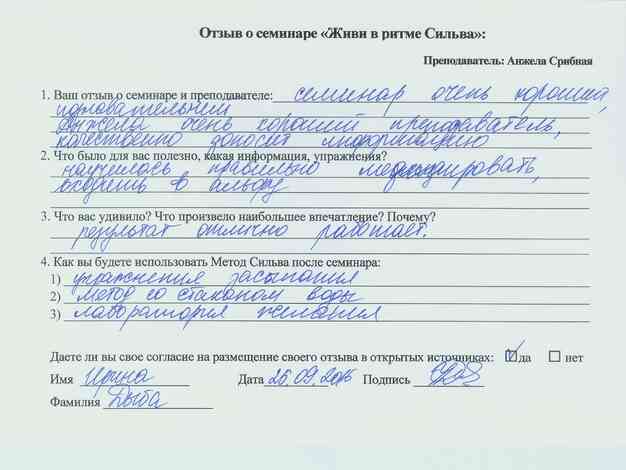 Отзыв о семинаре «Живи в ритме Сильва»:
Преподаватель: Анжела Срибная
1. Ваш отзыв о семинаре и преподавателе: семинар очень хороший,
познавательный
очень хороший преподаватель,
качественно доносит информацию
2. Что было для вас полезно, какая информация, упражнения?
научилась правильно медитировать,
входить в альфу
3. Что вас удивило? Что произвело наибольшее впечатление? Почему?
результат отлично работает.
4. Как вы будете использовать Метод Сильва после семинара:
1) упражнения засыпания
2) метод со стаканом воды
3) лаборатория желания
Даете ли вы свое согласие на размещение своего отзыва в открытых источниках: да нет
Имя Ирина Дата 26.09.2016 Подпись
Фамилия Дыба